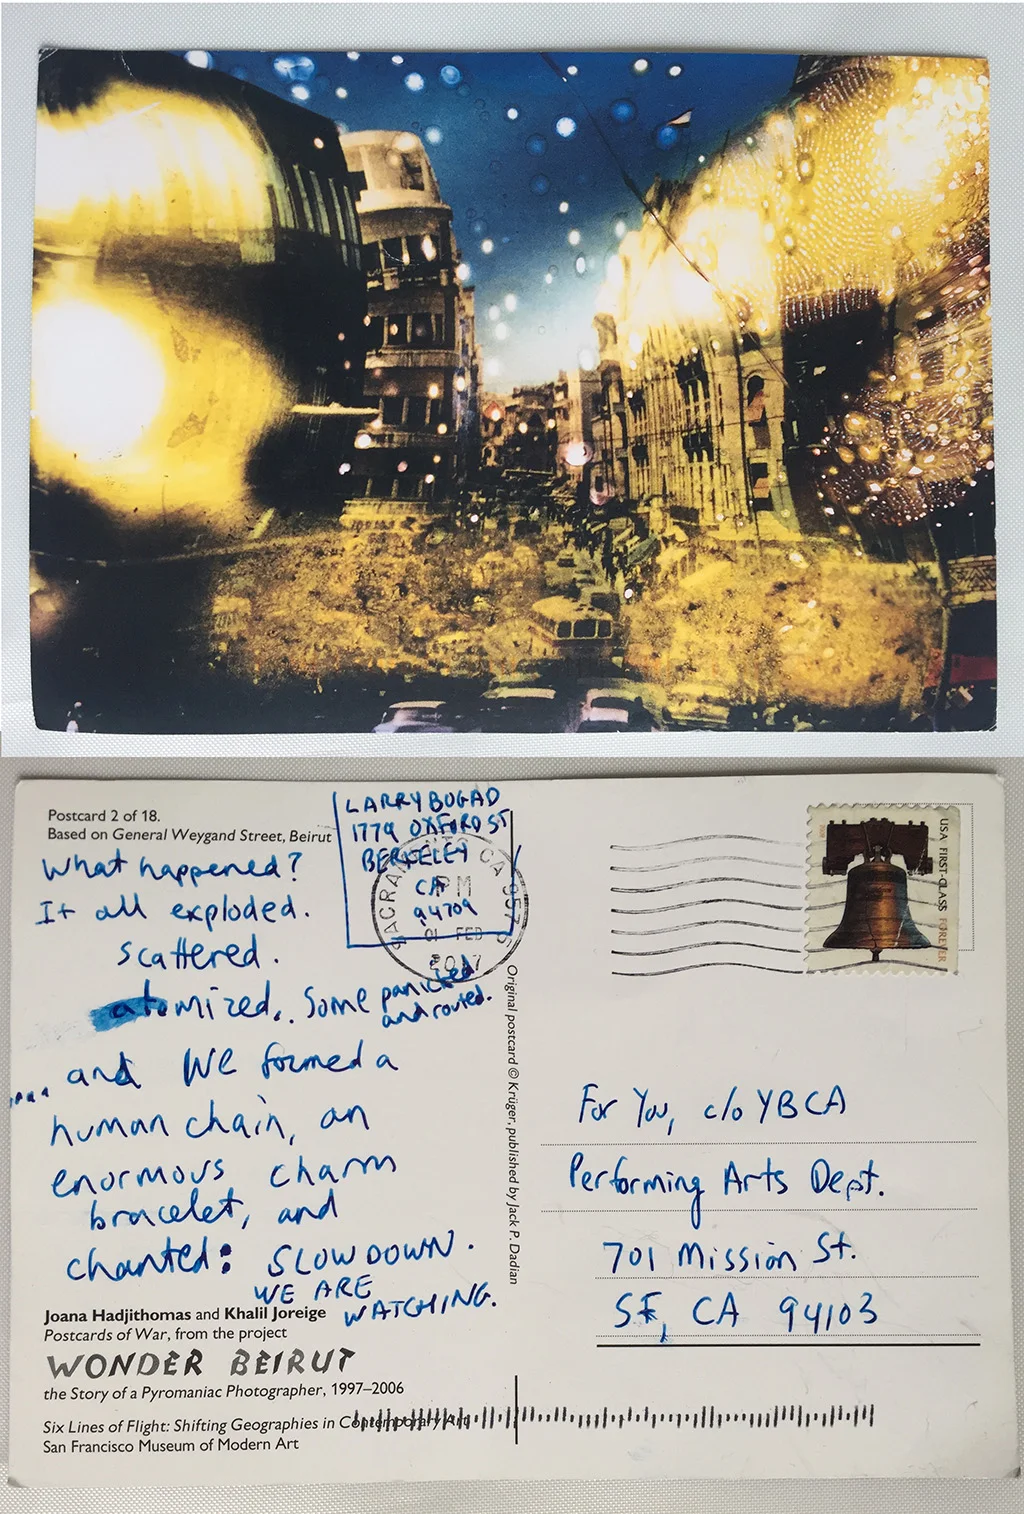 Postcard 2 of 18.
Based on General Weygand Street, Beirut
LARRY BOGAD
1779 OXFORD ST
BERKELEY
CA
94709
SACRAMENTO CA 957
PM
01 FEB
2017
USA FIRST-CLASS FOREVER
What happened?
It all exploded.
scattered.
atomized.. Some panicked
and routed.
.... and We formed a
human chain, an
enormous charm
bracelet, and
chanted: SLOW DOWN.
WE ARE
WATCHING.
Original postcard © Krüger, published by Jack P. Dadian
For You, c/o YBCA
Performing Arts Dept.
701 Mission St.
SF, CA 94103
Joana Hadjithomas and Khalil Joreige
Postcards of War, from the project
WONDER BEIRUT
the Story of a Pyromaniac Photographer, 1997–2006
Six Lines of Flight: Shifting Geographies in Contemporary Art
San Francisco Museum of Modern Art